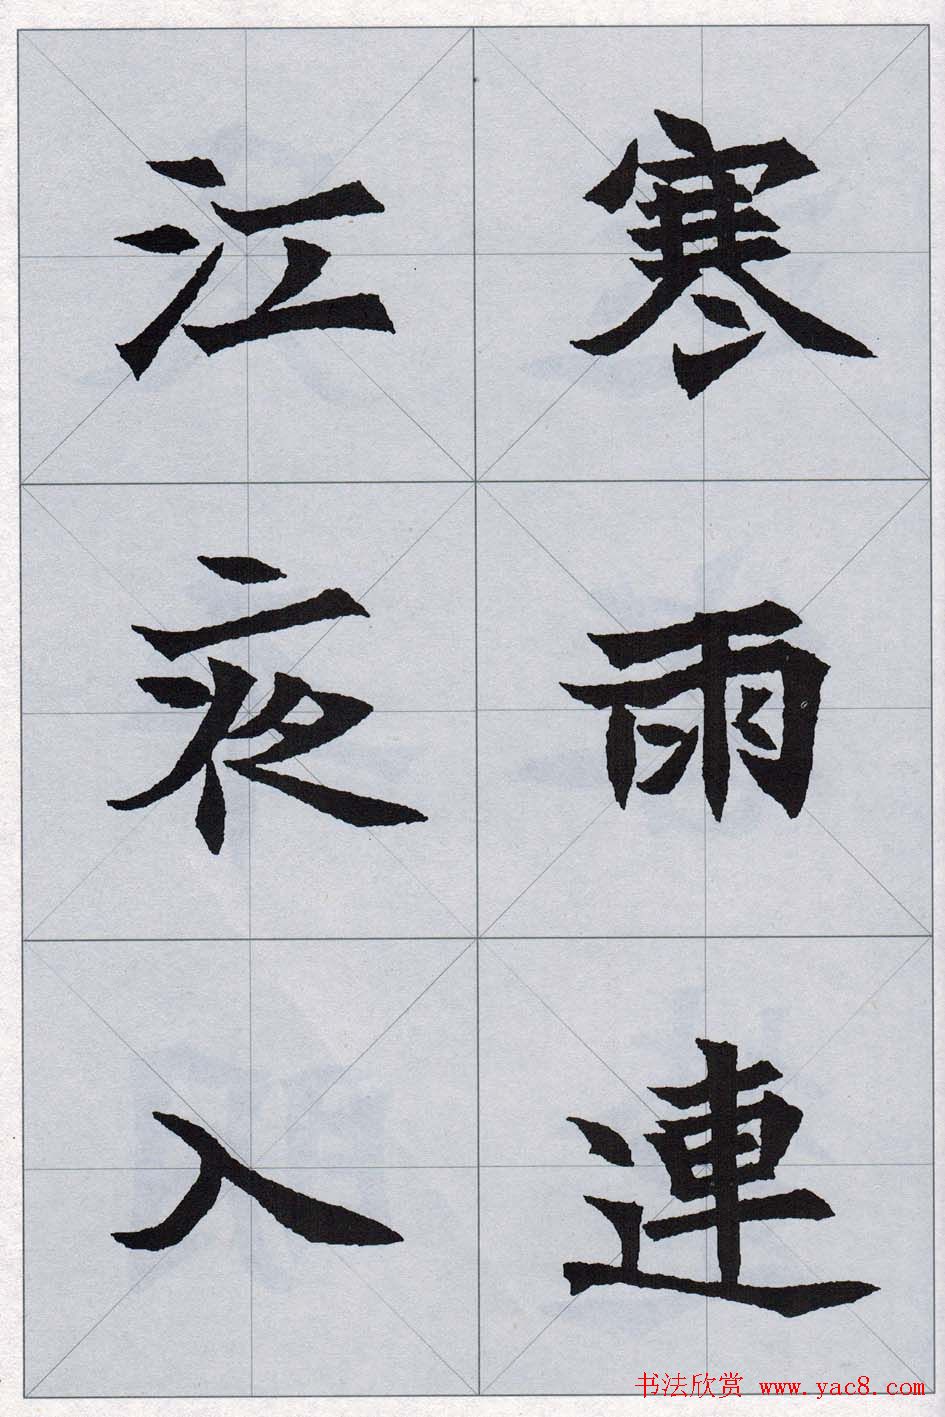 寒雨連
江夜入
书法欣赏 www.yac8.com